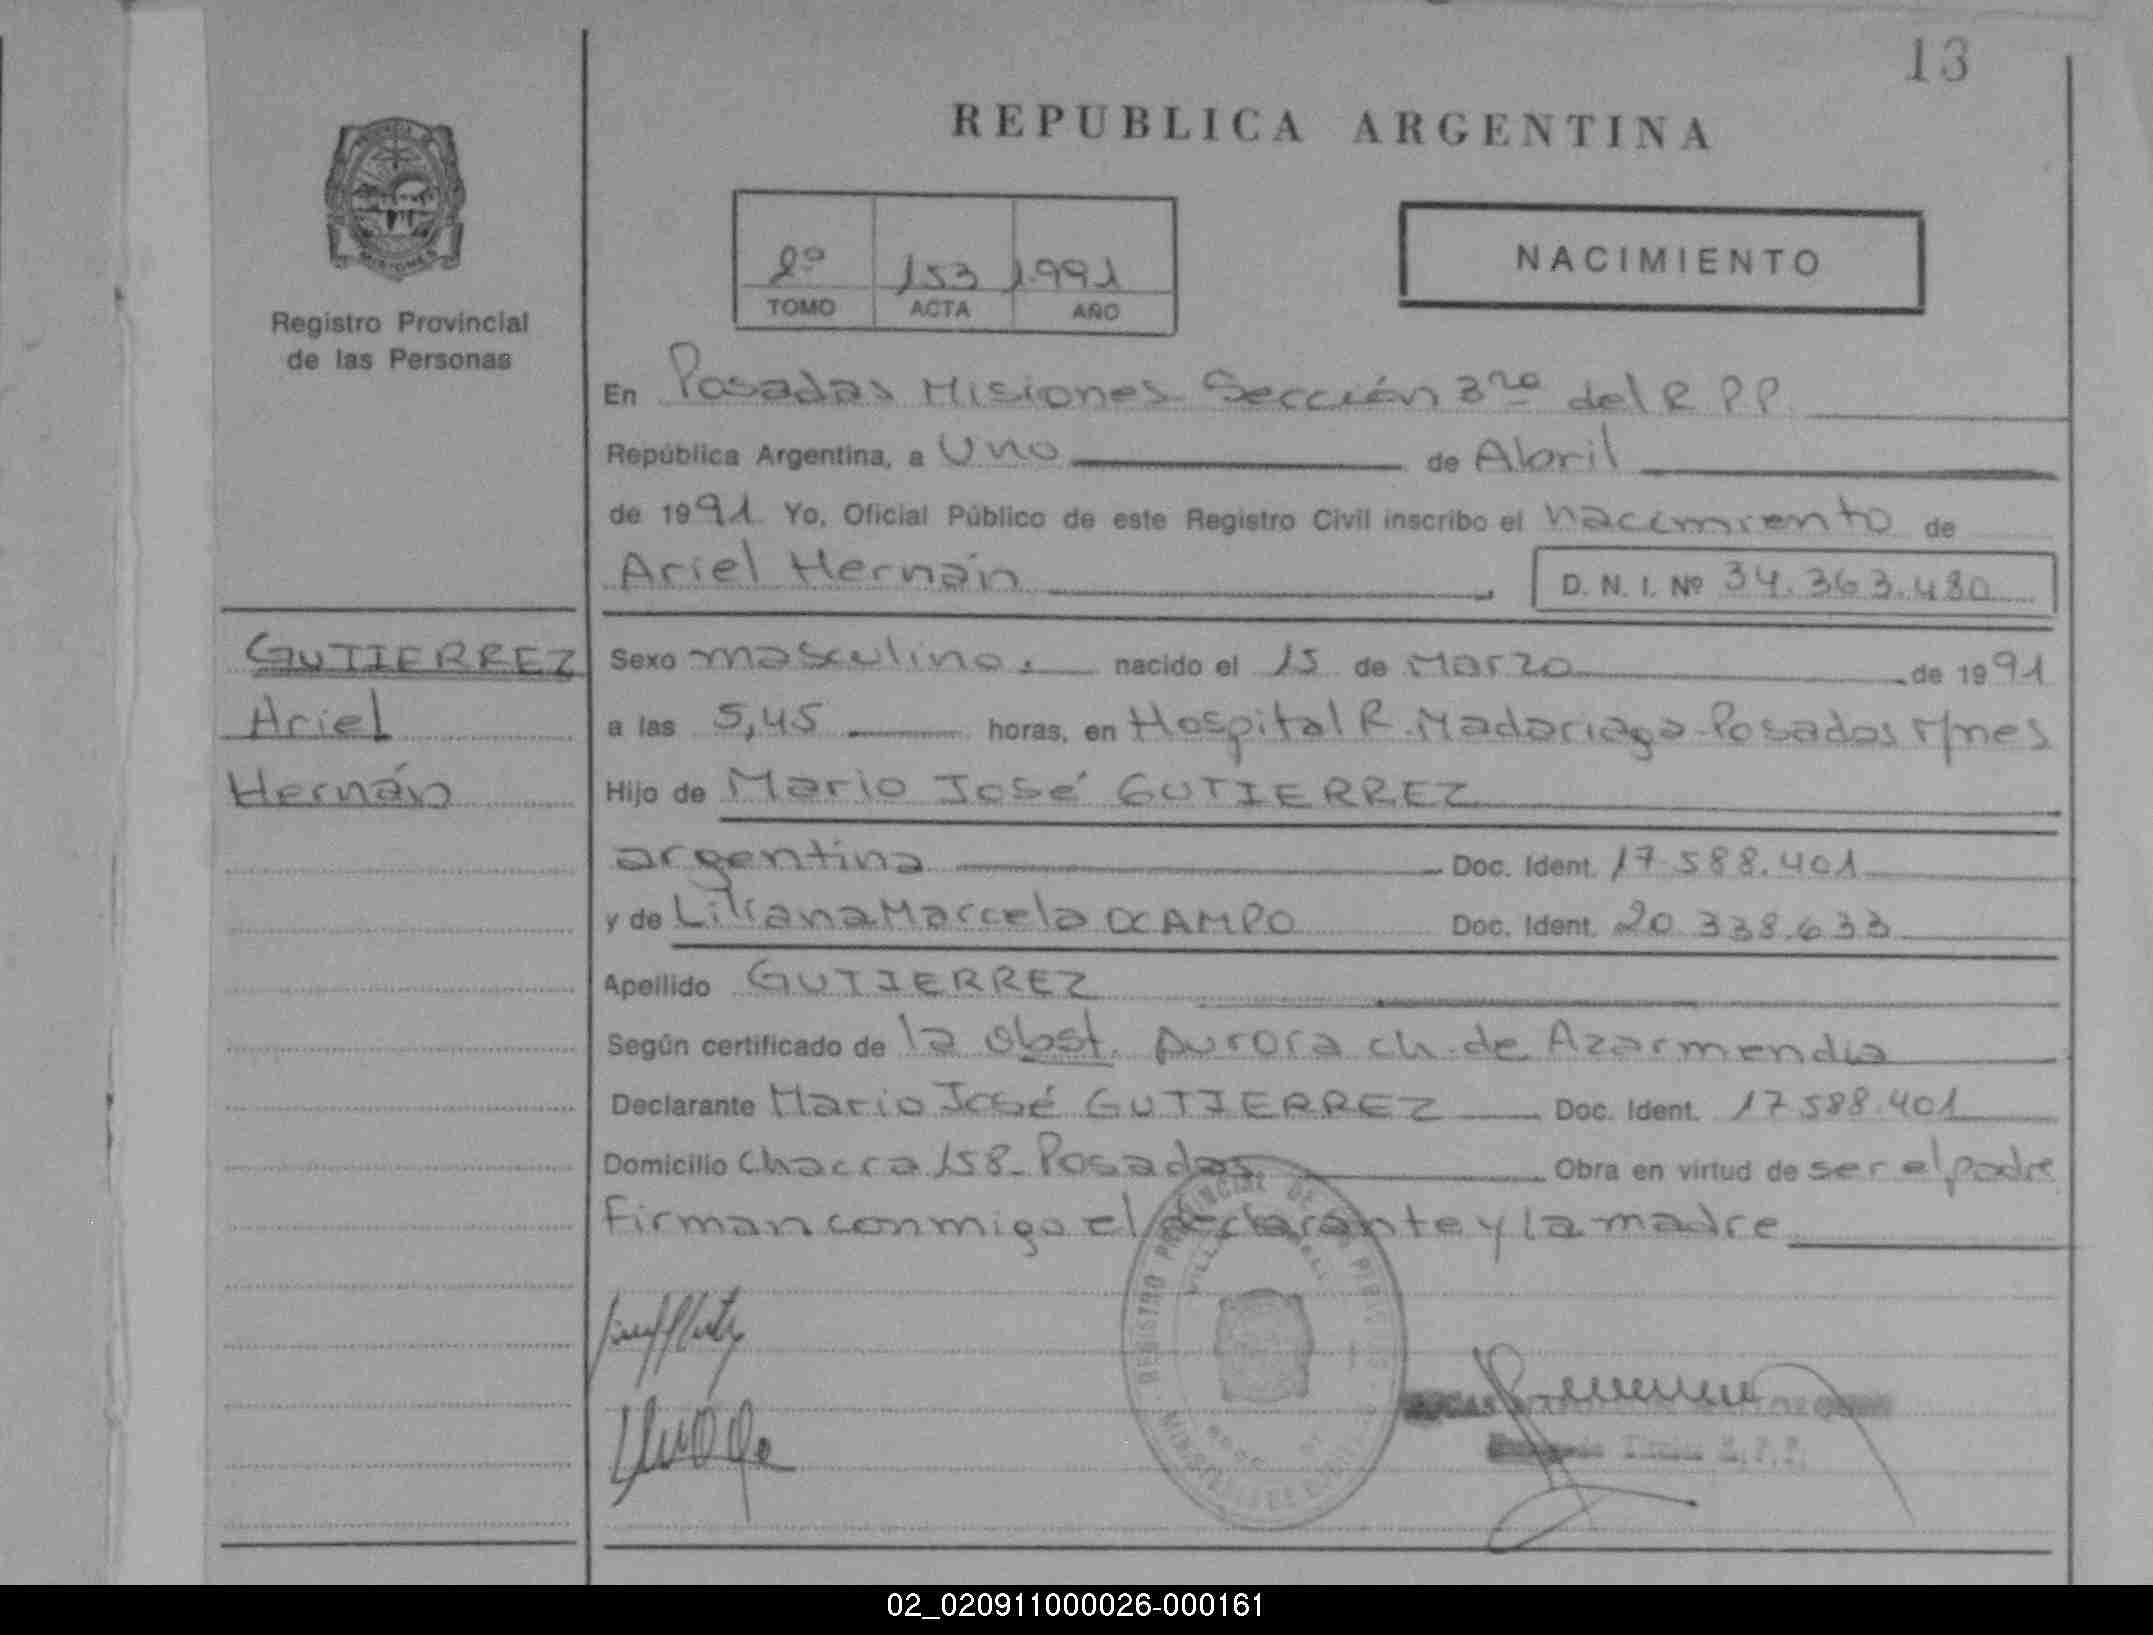 13
REPUBLICA ARGENTINA
MISIONES
Registro Provincial
de las Personas
2º 153 1991
TOMO ACTA AÑO
NACIMIENTO
En Posadas Misiones Sección 3ra del R P P.
República Argentina, a Uno de Abril
de 1991 Yo, Oficial Público de este Registro Civil inscribo el nacimiento de
Ariel Hernán D. N. I. Nº 34.363.480
GUTIERREZ
Ariel
Hernán
Sexo masculino. nacido el 15 de Marzo de 1991
a las 5,45 horas, en Hospital R. Madariaga-Posadas M/nes
Hijo de Mario José GUTIERREZ
argentina Doc. Ident. 17.588.401
y de Liliana Marcela OCAMPO Doc. Ident. 20 338.633
Apellido GUTIERREZ
Según certificado de la obst. Aurora ch. de Azarmendia
Declarante Mario José GUTIERREZ Doc. Ident. 17 588.401
Domicilio Chacra 158- Posadas Obra en virtud de ser el padre
Firman conmigo el declarante y la madre
REGISTRO PROVINCIAL DE LAS PERSONAS
02_020911000026-000161